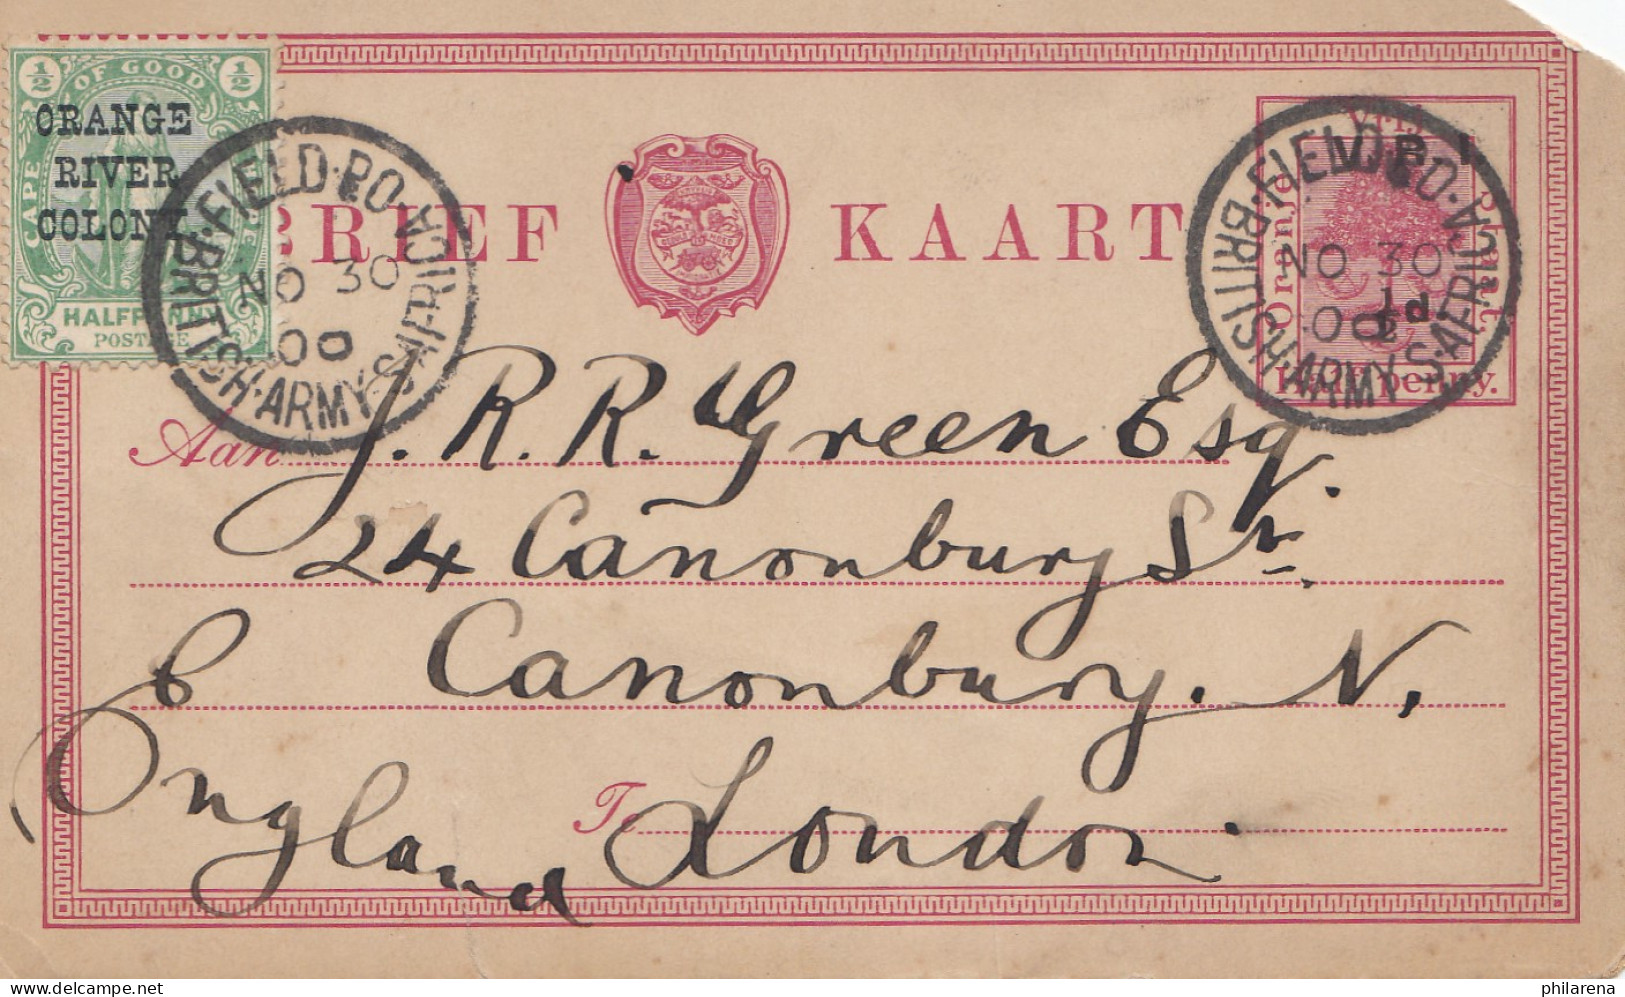 ½ ½
CAPE OF GOOD
ORANGE
RIVER
COLONY.
HALFPENNY
POSTAGE
FIELD·P.O.·BRITISH·ARMY·S·AFRICA
NO 30
00
BRIEF KAART
Oranje
V.R.I.
½d
Half penny.
FIELD·P.O.·BRITISH·ARMY·S·AFRICA
NO 30
00
Aan J. R. R. Green Esq.
24 Canonbury St.
Canonbury. N.
Te London.
England
delcampe.net
philarena